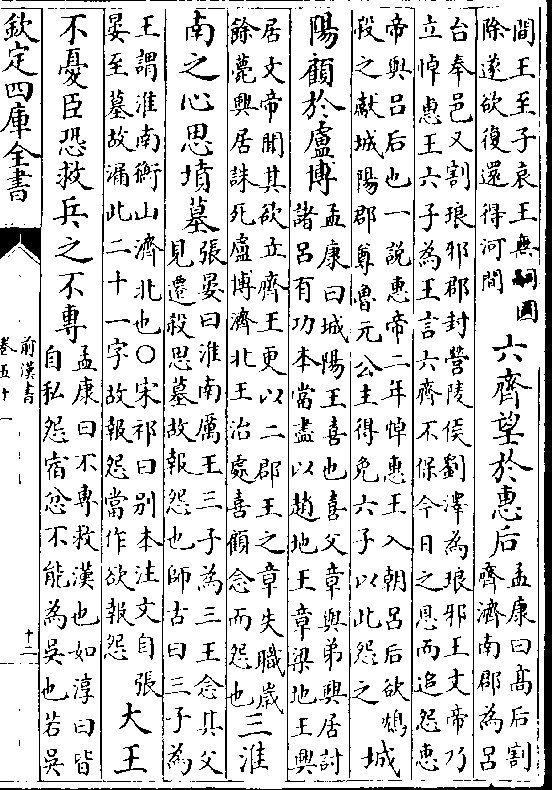 間王至子哀王無嗣國
除遂欲復還得河間
六齊望於惠后
孟康曰高后割
齊濟南郡為呂
台奉邑又割琅邪郡封營陵侯劉澤為琅邪王文帝乃
立悼惠王六子為王言六齊不保今日之恩而追怨惠
帝與呂后也一說惠帝二年悼惠王入朝呂后欲鴆
殺之獻城陽郡尊魯元公主得免六子以此怨之
城
陽顧於盧博
孟康曰城陽王喜也喜父章與弟興居討
諸呂有功本當盡以趙地王章梁地王興
居文帝聞其欲立齊王更以二郡王之章失職歲
餘薨興居誅死盧博濟北王治處喜顧念而怨也
三淮
南之心思墳墓
張晏曰淮南厲王三子為三王念其父
見遷殺思墓故報怨也師古曰三子為
王謂淮南衡山濟北也○宋祁曰别本注文自張
晏至墓故漏此二十一字故報怨當作欲報怨
大王
不憂臣恐救兵之不專
孟康曰不專救漢也如淳曰皆
自私怨宿忿不能為吳也若吳
欽定四庫全書
前漢書
卷五十一
十三